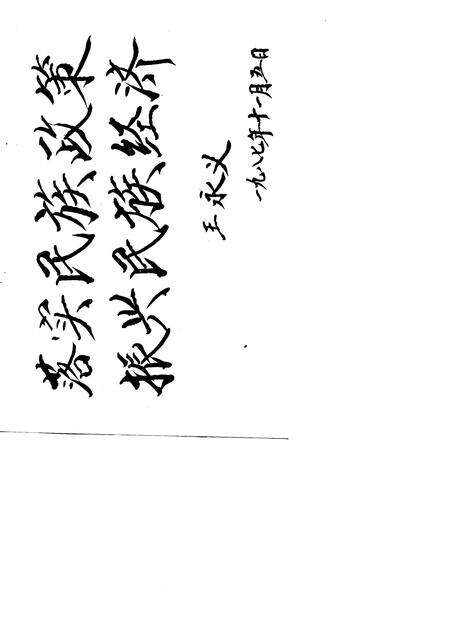 落实民族政策
振兴民族经济
王永义
一九八七年十一月五日